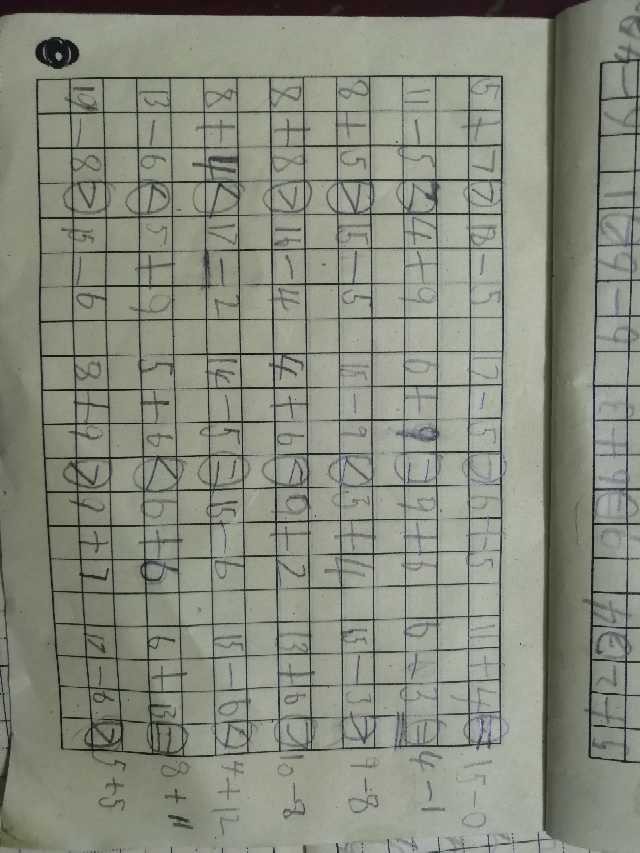 5+7>13-5 17-5>6+5 11+4=15-0
11-5<4+9 6+9=9+6 6-3=4-1
8+5>15-5 15-9<5+4 15-3>9-8
8+8>14-4 4+6<9+2 13+6>10-8
8+4<17-2 14-5=15-6 15-6<4+12
13-6<5+9 5+6<6+6 6+13=8+11
19-8>15-6 8+9>9+7 17-6>5+5
5+2>4